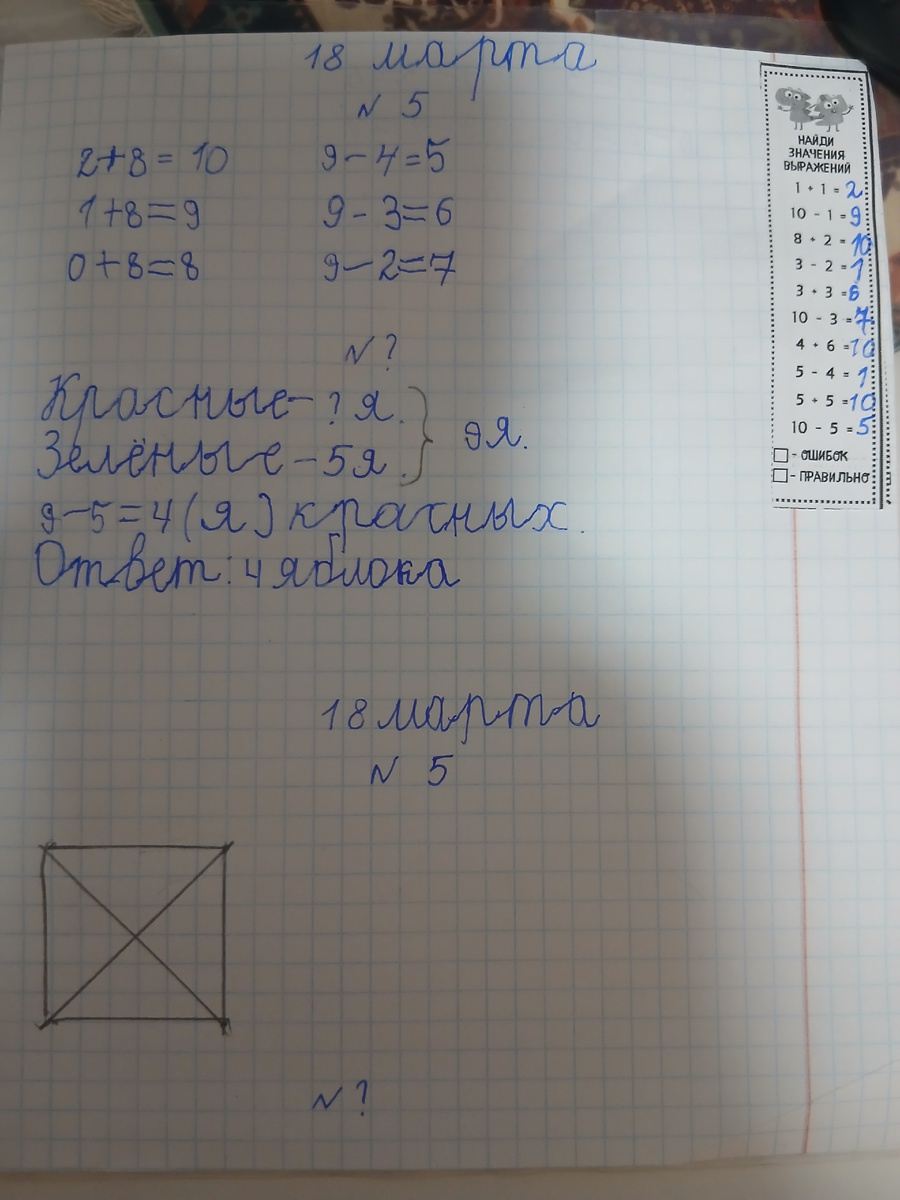 18 марта
N 5
2+8=10 9-4=5
1+8=9 9-3=6
0+8=8 9-2=7
N ?
Красные - ? я.
Зелёные - 5я.
9я.
9-5=4(я) красных.
Ответ: 4 яблока
18 марта
N 5
N ?
НАЙДИ
ЗНАЧЕНИЯ
ВЫРАЖЕНИЙ
1 + 1 = 2
10 - 1 = 9
8 + 2 = 10
3 - 2 = 1
3 + 3 = 6
10 - 3 = 7
4 + 6 = 10
5 - 4 = 1
5 + 5 = 10
10 - 5 = 5
- ОШИБОК
- ПРАВИЛЬНО